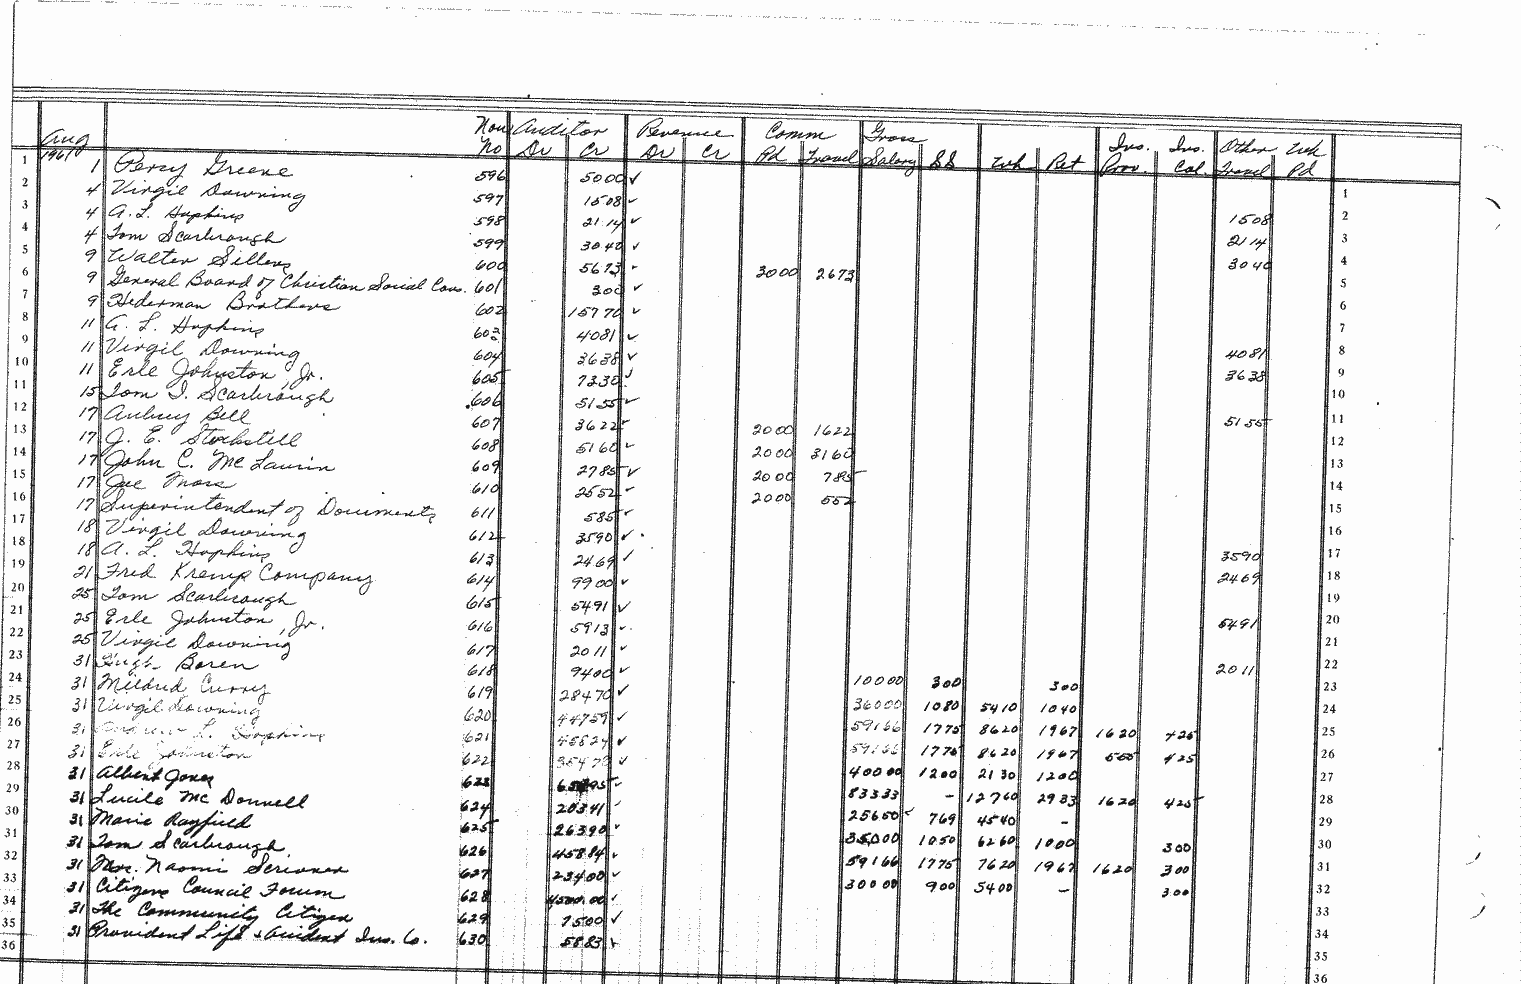 Aug 1961 Non No Auditor Dr Cr Revenue Dr Cr Comm Pd Travel Gross Salary SS Wh Ret Ins. Prov. Ins. Col. Other Travel Wh Pd
1 1 Percy Greene 596 5000 ✓ 1
2 4 Virgil Downing 597 1508 ✓ 1508 2
3 4 A. L. Hopkins 598 2114 ✓ 2114 3
4 4 Tom Scarbrough 599 3040 ✓ 3040 4
5 9 Walter Sillers 600 5673 ✓ 3000 2673 5
6 9 General Board of Christian Social Con. 601 300 ✓ 6
7 9 Hederman Brothers 602 15770 ✓ 7
8 11 A. L. Hopkins 603 4081 ✓ 4081 8
9 11 Virgil Downing 604 3638 ✓ 3638 9
10 11 Erle Johnston, Jr. 605 7330 ✓ 10
11 15 Tom I. Scarbrough 606 5155 ✓ 5155 11
12 17 Aubrey Bell 607 3622 ✓ 2000 1622 12
13 17 J. E. Stockstill 608 5160 ✓ 2000 3160 13
14 17 John C. McLaurin 609 2785 ✓ 2000 785 14
15 17 Joe Moss 610 2552 ✓ 2000 552 15
16 17 Superintendent of Documents 611 585 ✓ 16
17 18 Virgil Downing 612 3590 ✓ 3590 17
18 18 A. L. Hopkins 613 2469 ✓ 2469 18
19 21 Fred Kremp Company 614 9900 ✓ 19
20 25 Tom Scarbrough 615 5491 ✓ 5491 20
21 25 Erle Johnston, Jr. 616 5913 ✓ 21
22 25 Virgil Downing 617 2011 ✓ 2011 22
23 31 Hugh Boren 618 9400 ✓ 10000 300 300 23
24 31 Mildred Curry 619 28470 ✓ 36000 1080 5410 1040 24
25 31 Virgil Downing 620 44759 ✓ 59166 1775 8620 1967 1620 425 25
26 31 Andrew L. Hopkins 621 45824 ✓ 59166 1775 8620 1967 555 425 26
27 31 Erle Johnston 622 35470 ✓ 40000 1200 2130 1200 27
28 31 Albert Jones 623 83333 - 12760 2933 1620 425 28
29 31 Lucile McDonnell 624 20341 ✓ 25650 ✓ 769 4540 - 29
30 31 Marie Rayfield 625 26390 ✓ 35000 1050 6260 1000 300 30
31 31 Tom Scarbrough 626 45884 ✓ 59166 1775 7620 1967 1620 300 31
32 31 Mrs. Naomi Scrivner 627 23400 ✓ 30000 900 5400 - 300 32
33 31 Citizens Council Forum 628 4500.00 ✓ 33
34 31 The Community Citizen 629 7500 ✓ 34
35 31 Provident Life & Accident Ins. Co. 630 5883 ✓ 35
36 36